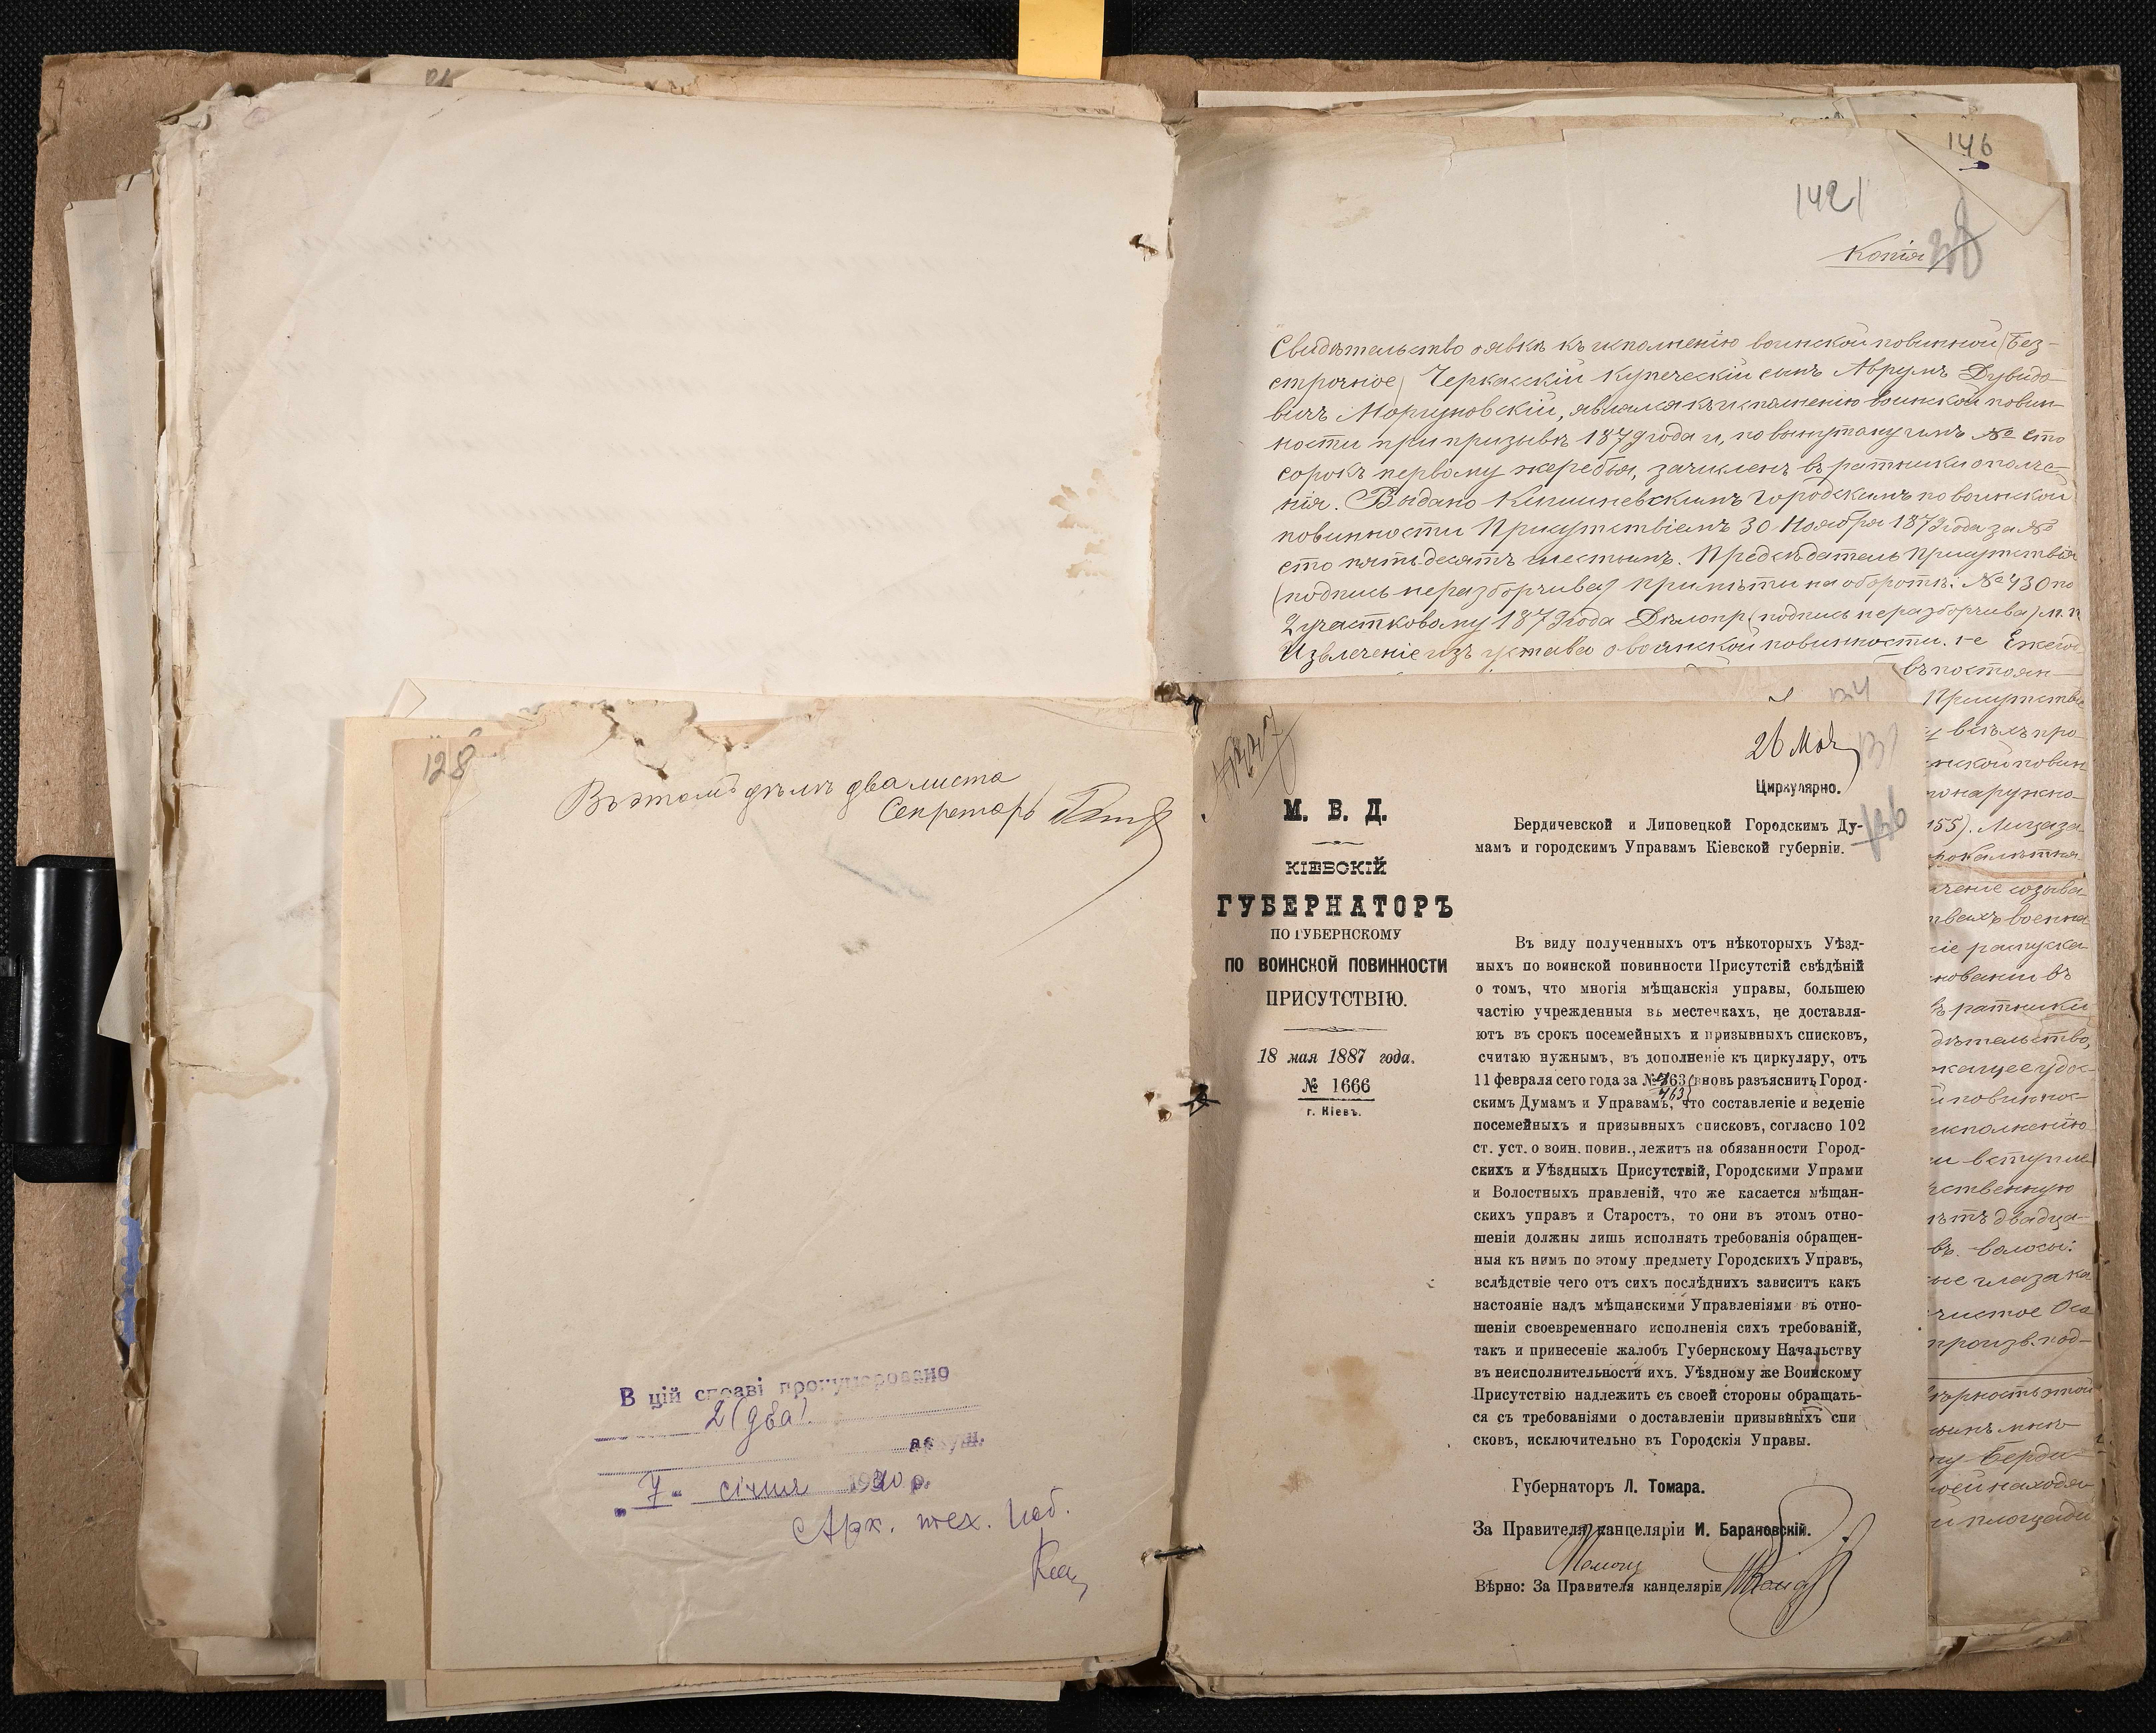 146
142
Копія
Свидѣтельство о явкѣ къ исполненію воинской повинной (Без-
строчное) Черкасскій купеческій сынъ Аврумъ Дувидо-
вичъ Моргуновскій, являлся къ исполненію воинской повин-
ности при призывѣ 1879 года и, по вынутому имъ № сто
сорокъ первому жеребья, зачисленъ въ ратники ополче-
нія. Выдано Кишиневскимъ городскимъ по воинской
повинности Присутствіемъ 30 Ноября 1879 года за №
сто пятьдесятъ шестымъ. Предсѣдатель Присутствія
(подпись неразборчива) примѣты на оборотѣ: № 430 по
2 участковому 1879 года Дѣлопр. (подпись неразборчива) м. п.
Извлеченіе изъ устава о воинской повинности. 1-е Ежего
въ постоян-
Присутстві
155). Лица за
ченіе созыва
ніе распуска
нованіи въ
въ ратники
дѣтельство,
исполненію
и вступле
лѣтъ двадца-
въ. волосы:
ые глаза ка
чистое Осо
произв. под-
ѣрность этой
ну Берди-
ей находя
и площади
128
Въ этомъ дѣлѣ два листа
Секретарь
В цій справі пронумеровано
2 (два)
аркуш.
„7“ січня 1940 р.
Арх. тех. роб.
Кац
26 Мая
Циркулярно.
126
М. В. Д.
КІЕВСКІЙ
ГУБЕРНАТОРЪ
ПО ГУБЕРНСКОМУ
ПО ВОИНСКОЙ ПОВИННОСТИ
ПРИСУТСТВІЮ.
18 мая 1887 года.
№ 1666
г. Кіевъ.
Бердичевской и Липовецкой Городскимъ Ду-
мамъ и городскимъ Управамъ Кіевской губерніи.
Въ виду полученныхъ отъ нѣкоторыхъ Уѣзд-
ныхъ по воинской повинности Присутстій свѣдѣній
о томъ, что многія мѣщанскія управы, большею
частію учрежденныя въ местечкахъ, не доставля-
ютъ въ срокъ посемейныхъ и призывныхъ списковъ,
считаю нужнымъ, въ дополненіе къ циркуляру, отъ
11 февраля сего года за № 463 вновь разъяснить Город-
463
скимъ Думамъ и Управамъ, что составленіе и веденіе
посемейныхъ и призывныхъ списковъ, согласно 102
ст. уст. о воин. повин., лежитъ на обязанности Город-
скихъ и Уѣздныхъ Присутствій, Городскими Упрами
и Волостныхъ правленій, что же касается мѣщан-
скихъ управъ и Старостъ, то они въ этомъ отно-
шеніи должны лишь исполнять требованія обращен-
ныя къ нимъ по этому предмету Городскихъ Управъ,
вслѣдствіе чего отъ сихъ послѣднихъ зависитъ какъ
настояніе надъ мѣщанскими Управленіями въ отно-
шеніи своевременнаго исполненія сихъ требованій,
такъ и принесеніе жалобъ Губернскому Начальству
въ неисполнительности ихъ. Уѣздному же Воинскому
Присутствію надлежить съ своей стороны обращать-
ся съ требованіями о доставленіи призывныхъ спи
сковъ, исключительно въ Городскія Управы.
Губернаторъ Л. Томара.
За Правителя канцеляріи И. Барановскій.
Вѣрно: За Правителя канцеляріи